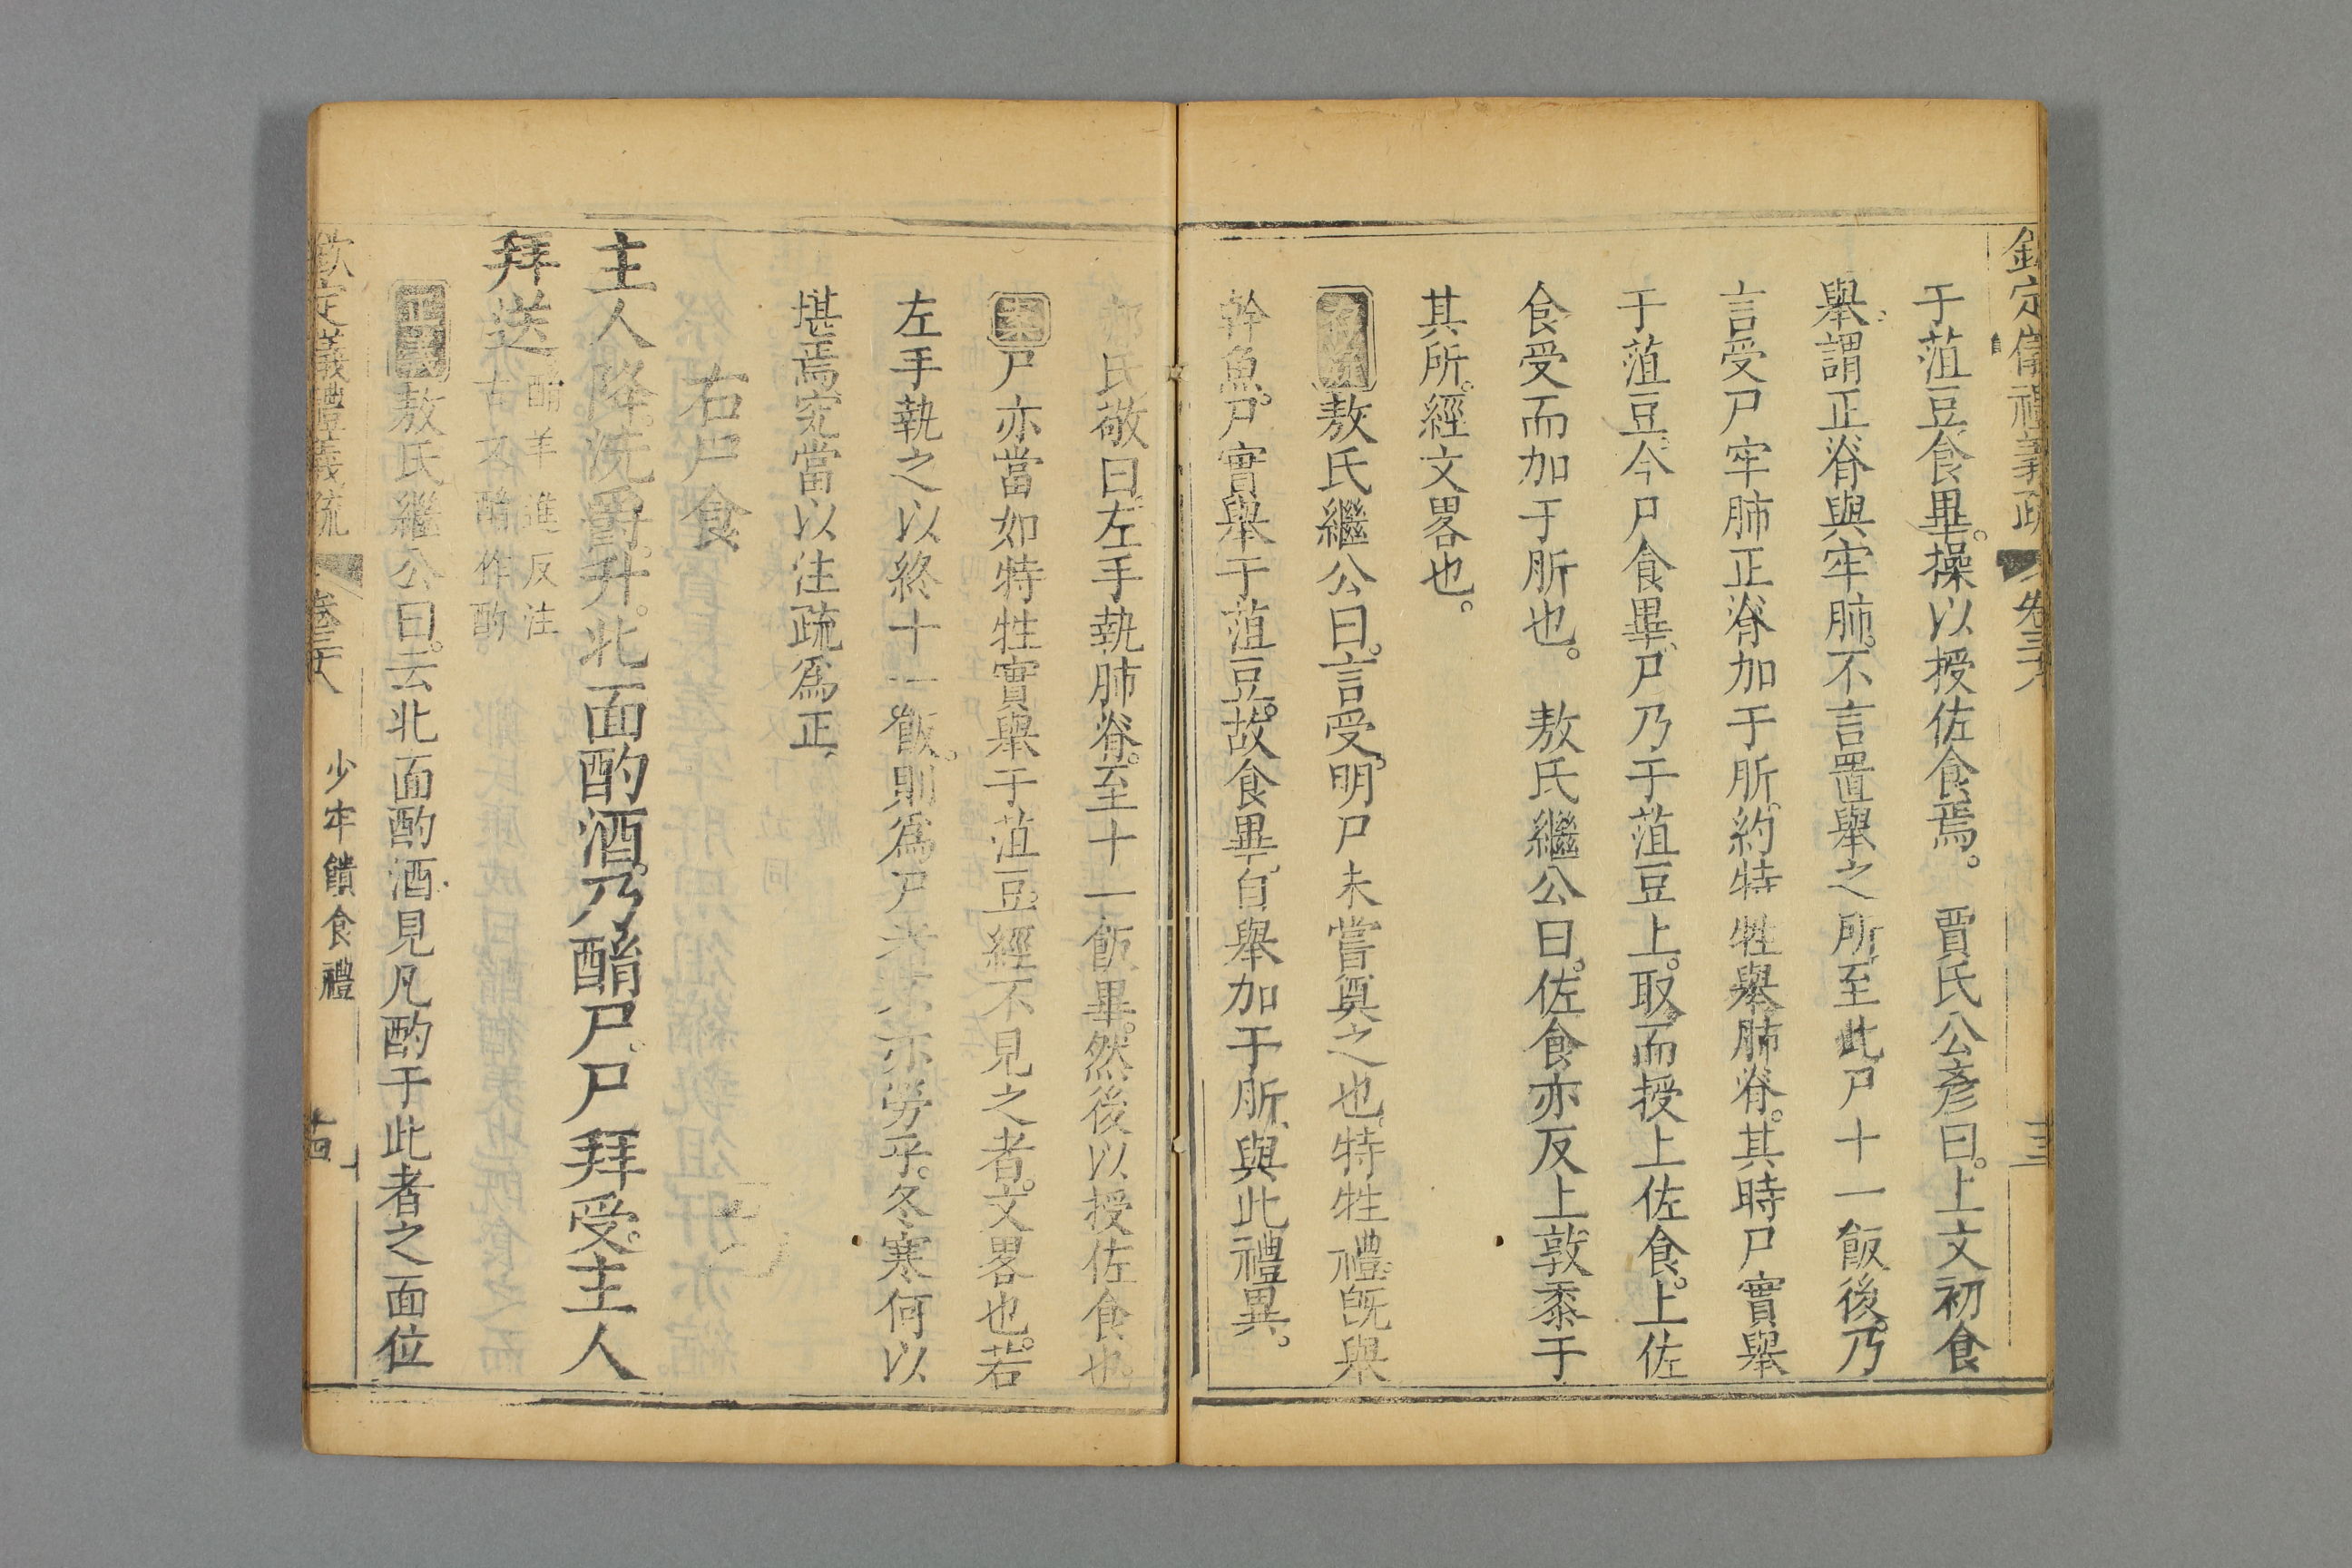 欽定儀禮義疏 卷三十八 十三
于菹豆食畢操以授佐食焉。 賈氏公彥曰上文初食
舉謂正脊與牢肺不言置舉之所至此尸十一飯後乃
言受尸牢肺正脊加于肵約特牲舉肺脊其時尸實舉
于菹豆今尸食畢尸乃于菹豆上取而授上佐食上佐
食受而加于肵也。 敖氏繼公曰佐食亦反上敦黍于
其所經文畧也。
敖氏繼公曰言受明尸未嘗奠之也特牲禮旣舉
幹魚尸實舉于菹豆故食畢自舉加于肵與此禮異。
郝氏敬曰左手執肺脊至十一飯畢然後以授佐食也
案尸亦當如特牲實舉于菹豆經不見之者文畧也若
左手執之以終十一飯則爲尸者不亦勞乎冬寒何以
堪焉究當以注疏爲正
右尸食
主人降洗爵升北面酌酒乃酳尸尸拜受主人
拜送 酳羊進反注
古文酳作酌
正義敖氏繼公曰云北面酌酒見凡酌于此者之面位
欽定儀禮義疏 卷三十八 少牢饋食禮 十四